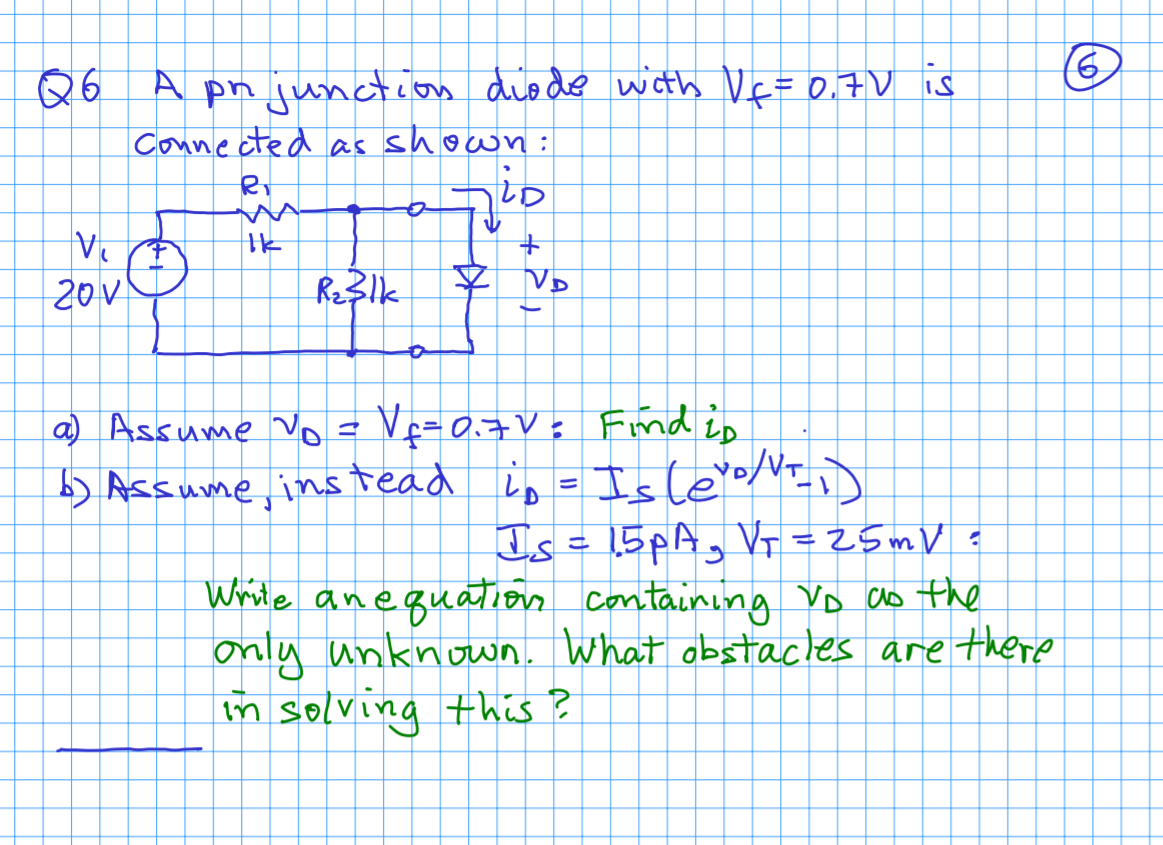 Q6 A pn junction diode with V_f = 0.7V is
6
connected as shown:
R₁
i_D
V₁
1k
+
20V
+
-
R₂
1k
v_D
-
a) Assume v_D = V_f = 0.7V: Find i_D
b) Assume, instead i_D = I_S (e^{v_D/V_T} - 1)
I_S = 1.5pA, V_T = 25mV:
Write an equation containing v_D as the
only unknown. What obstacles are there
in solving this?